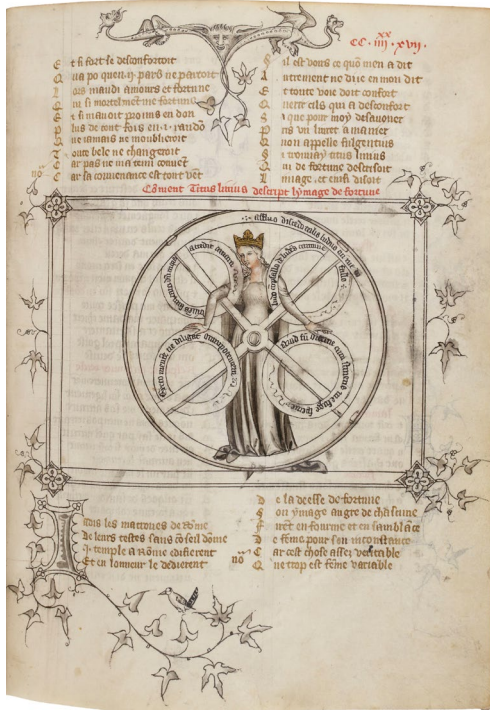 CC.iiii.xx.xvii.
Et si fort le desconfortoit
Qua po quen.ij. pars ne partoit
Lors maudi amours et fortune
Qui si mortelmēt me fortune
Et si mavoit promis en don
Plus de cent fois en .i. rādō
Que iamais ne moublieroit
Toute bele ne changeroit
Car pas ne ma tenu couēt
nō Car sa couvenance est tout vēt
Sil est voirs ce quō men a dit
Autrement ne di ie en mon dit
Et toute voie doit confort
Querre cils qui a desconfort
Si que pour moy desanoier
Pris un livret a manier
Quon appelle fulgentius
Si trouvay titus livius
Qui de fortune descrisoit
Limage . et einsi disoit
Cōment Titus livius descript lymage de fortune
affluo discedo talis ludus cui me do
Iadis les matrones de Rōme
de leurs testes sans cōseil dōme
.i. temple a Rōme edifierent
Et en lonneur le dedierent
De la deesse de fortune
Son ymage de chascune
Firēt en fourme et en samblāce
De fēme pour son incōstance
Car cest chose assez veritable
nō Que trop est fēme variable